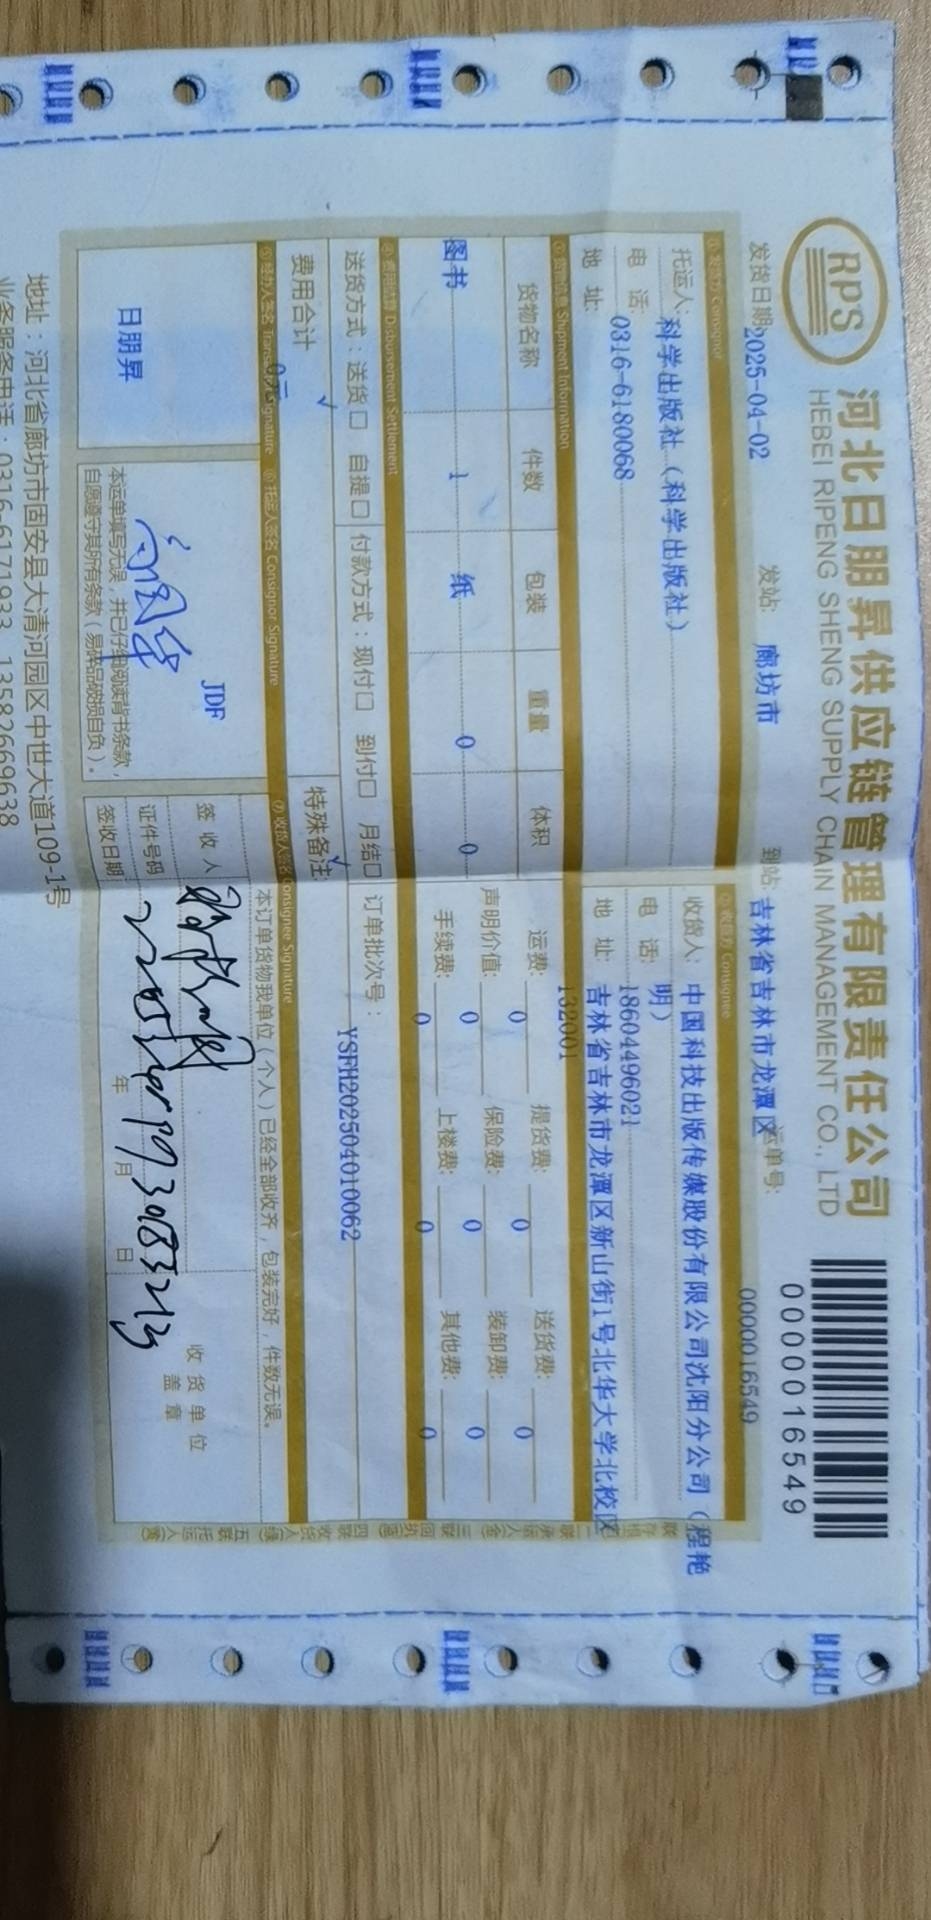 RPS
河北日朋昇供应链管理有限责任公司
HEBEI RIPENG SHENG SUPPLY CHAIN MANAGEMENT CO., LTD
0000016549
发货日期:2025-04-02 发站: 廊坊市 到站: 吉林省吉林市龙潭区 运单号: 0000016549
①发货方 Consignor
托运人: 科学出版社（科学出版社）
电 话: 0316-6180068
地 址:
②收货方 Consignee
收货人: 中国科技出版传媒股份有限公司沈阳分公司（程艳
明）
电 话: 18604496021
地 址: 吉林省吉林市龙潭区新山街1号北华大学北校区
132001
③货物信息 Shipment Information
货物名称 件数 包装 重量 体积
图书 1 纸 0 0
运费: 0 提货费: 0 送货费: 0
声明价值: 0 保险费: 0 装卸费: 0
手续费: 0 上楼费: 0 其他费: 0
④费用结算 Disbursement Settlement
送货方式：送货□ 自提□ 付款方式：现付□ 到付□ 月结□ 订单批次号：
√ √ YSFH202504010062
费用合计 0元 特殊备注:
⑤经办人签名 Transactor Signature ⑥托运人签名 Consignor Signature ⑦收货人签名 Consignee Signature
日朋昇
JDF
本运单填写无误，并已仔细阅读背书条款，
自愿遵守其所有条款（易碎品破损自负）。
本订单货物我单位（个人）已经全部收齐，包装完好，件数无误。
签 收 人
证件号码
签收日期 年 月 日
收 货 单 位
盖 章
地址：河北省廊坊市固安县大清河园区中世大道109-1号
业务服务电话：0316-6171933 13582669638